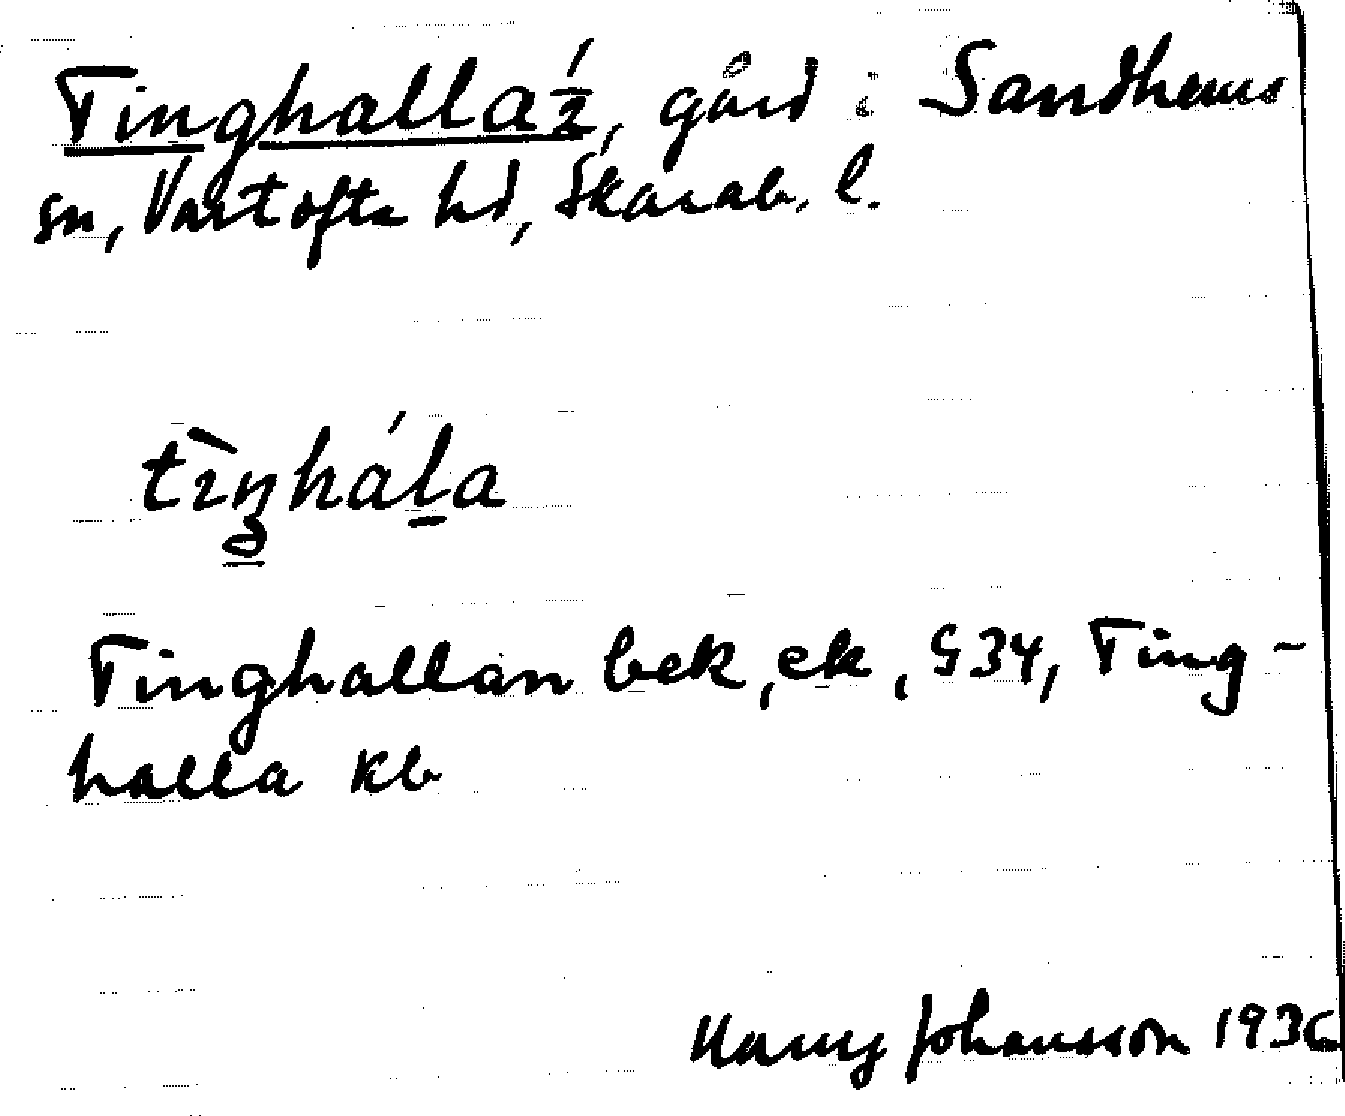 Tinghalla ½, gård i Sandhems
sn, Vartofta hd, Skarab. l.
tìŋháḻa
Tinghallan bek, ek, G34, Ting-
halla kb
Harry Johansson 1936